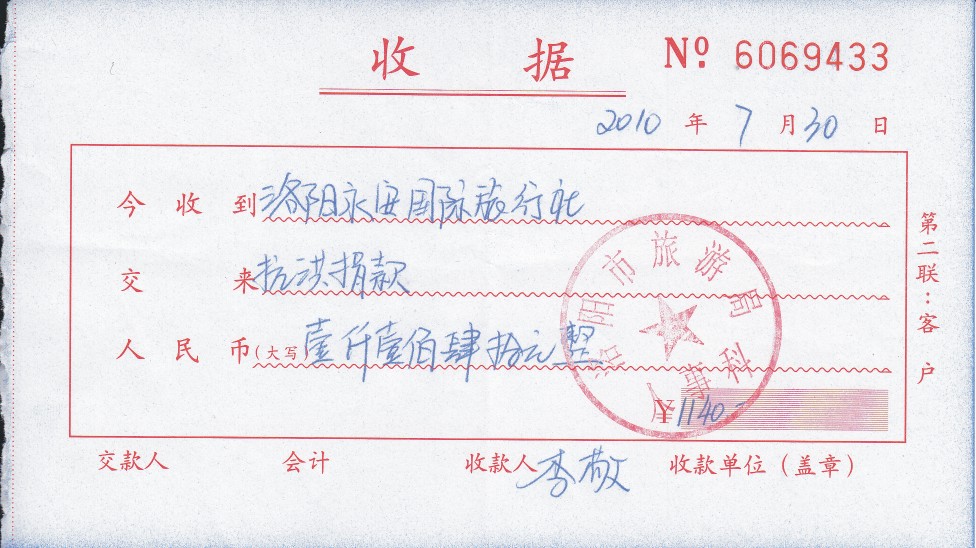 收据 № 6069433
2010 年 7 月 30 日
今收到 洛阳永安国际旅行社
交来 抗洪捐款
人民币(大写) 壹仟壹佰肆拾元整
¥ 1140-
洛阳市旅游局
人事科
第二联:客户
交款人 会计 收款人 李敬 收款单位(盖章)